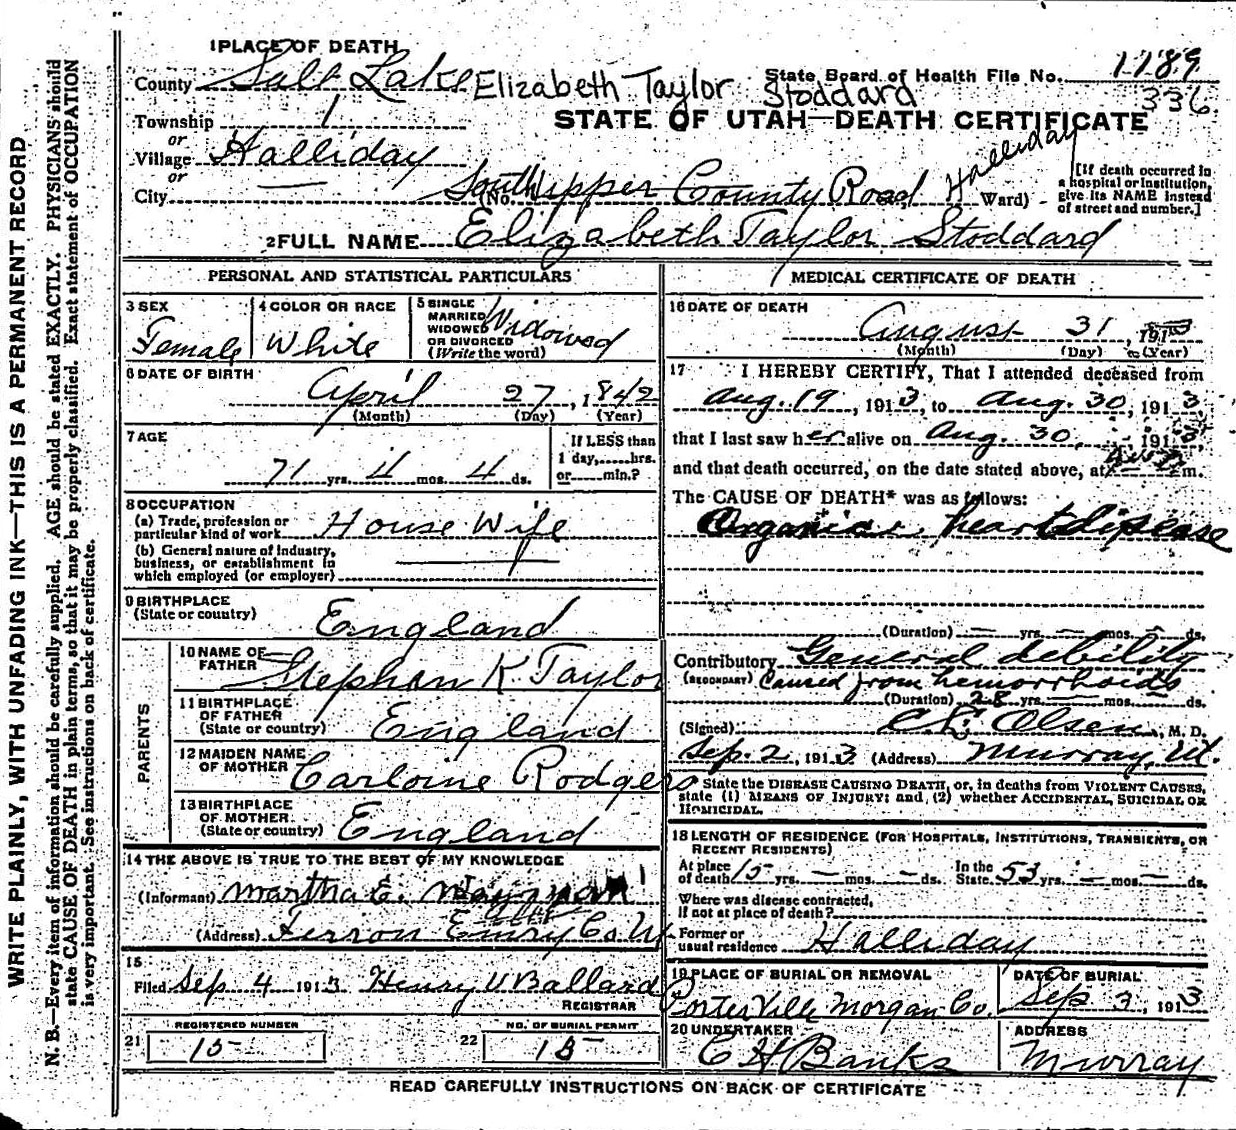 WRITE PLAINLY, WITH UNFADING INK—THIS IS A PERMANENT RECORD
N. B.—Every item of information should be carefully supplied. AGE should be stated EXACTLY. PHYSICIANS should
state CAUSE OF DEATH in plain terms, so that it may be properly classified. Exact statement of OCCUPATION
is very important. See instructions on back of certificate.
1 PLACE OF DEATH
County Salt Lake Elizabeth Taylor Stoddard State Board of Health File No. 1189
336
Township 1
STATE OF UTAH—DEATH CERTIFICATE
or
Village Halliday
or
City — (No. South Upper County Road Halliday Ward)
[If death occurred in
a hospital or institution,
give its NAME instead
of street and number.]
2 FULL NAME Elizabeth Taylor Stoddard
PERSONAL AND STATISTICAL PARTICULARS
3 SEX Female
4 COLOR OR RACE White
5 SINGLE
MARRIED
WIDOWED
OR DIVORCED
(Write the word) Widowed
6 DATE OF BIRTH
April 27, 1842
(Month) (Day) (Year)
7 AGE
71 yrs. 4 mos. 4 ds.
If LESS than
1 day,......hrs.
or......min.?
8 OCCUPATION
(a) Trade, profession or
particular kind of work House Wife
(b) General nature of industry,
business, or establishment in
which employed (or employer) —
9 BIRTHPLACE
(State or country) England
PARENTS
10 NAME OF
FATHER Stephen K Taylor
11 BIRTHPLACE
OF FATHER
(State or country) England
12 MAIDEN NAME
OF MOTHER Carloine Rodgers
13 BIRTHPLACE
OF MOTHER
(State or country) England
14 THE ABOVE IS TRUE TO THE BEST OF MY KNOWLEDGE
(Informant) Martha E.
(Address) Ferron Emry Co Ut
15
Filed Sep 4 1913 Henry V Ballard
REGISTRAR
REGISTERED NUMBER
21 15
NO. OF BURIAL PERMIT
22 15
MEDICAL CERTIFICATE OF DEATH
16 DATE OF DEATH
August 31, 1913
(Month) (Day) (Year)
17 I HEREBY CERTIFY, That I attended deceased from
Aug. 19, 1913, to Aug. 30, 1913,
that I last saw her alive on Aug. 30, 1913,
and that death occurred, on the date stated above, at m.
The CAUSE OF DEATH* was as follows:
Organic heart disease
(Duration) — yrs. — mos. — ds.
Contributory General debility
(SECONDARY) Caused from hemorrhoids
(Duration) 28 yrs. — mos. ds.
(Signed) C. L. Olsen, M. D.
Sep. 2, 1913 (Address) Murray, Ut.
* State the DISEASE CAUSING DEATH, or, in deaths from VIOLENT CAUSES,
state (1) MEANS OF INJURY; and (2) whether ACCIDENTAL, SUICIDAL OR
HOMICIDAL.
18 LENGTH OF RESIDENCE (FOR HOSPITALS, INSTITUTIONS, TRANSIENTS, OR
RECENT RESIDENTS)
At place
of death 15 yrs. — mos. — ds. In the
State 53 yrs. — mos. — ds.
Where was disease contracted,
if not at place of death?
Former or
usual residence Halliday
19 PLACE OF BURIAL OR REMOVAL
Porterville Morgan Co.
DATE OF BURIAL
Sep 3, 1913
20 UNDERTAKER
C H Banks
ADDRESS
Murray
READ CAREFULLY INSTRUCTIONS ON BACK OF CERTIFICATE